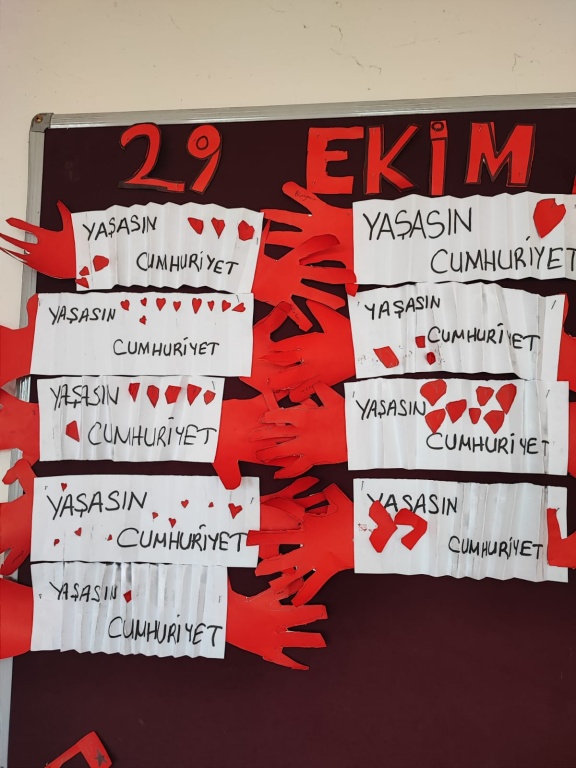 29 EKİM
YAŞASIN
CUMHURİYET
YAŞASIN
CUMHURİYET
YAŞASIN
CUMHURİYET
YAŞASIN
CUMHURİYET
YAŞASIN
CUMHURİYET
YAŞASIN
CUMHURİYET
YAŞASIN
CUMHURİYET
YAŞASIN
CUMHURİYET
YAŞASIN
CUMHURİYET